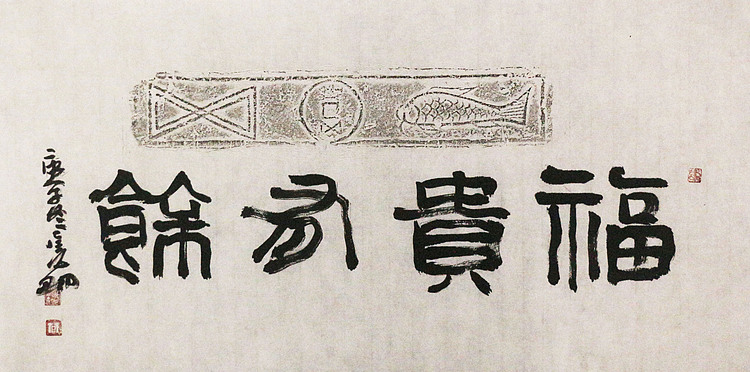 福貴有餘
庚子冬